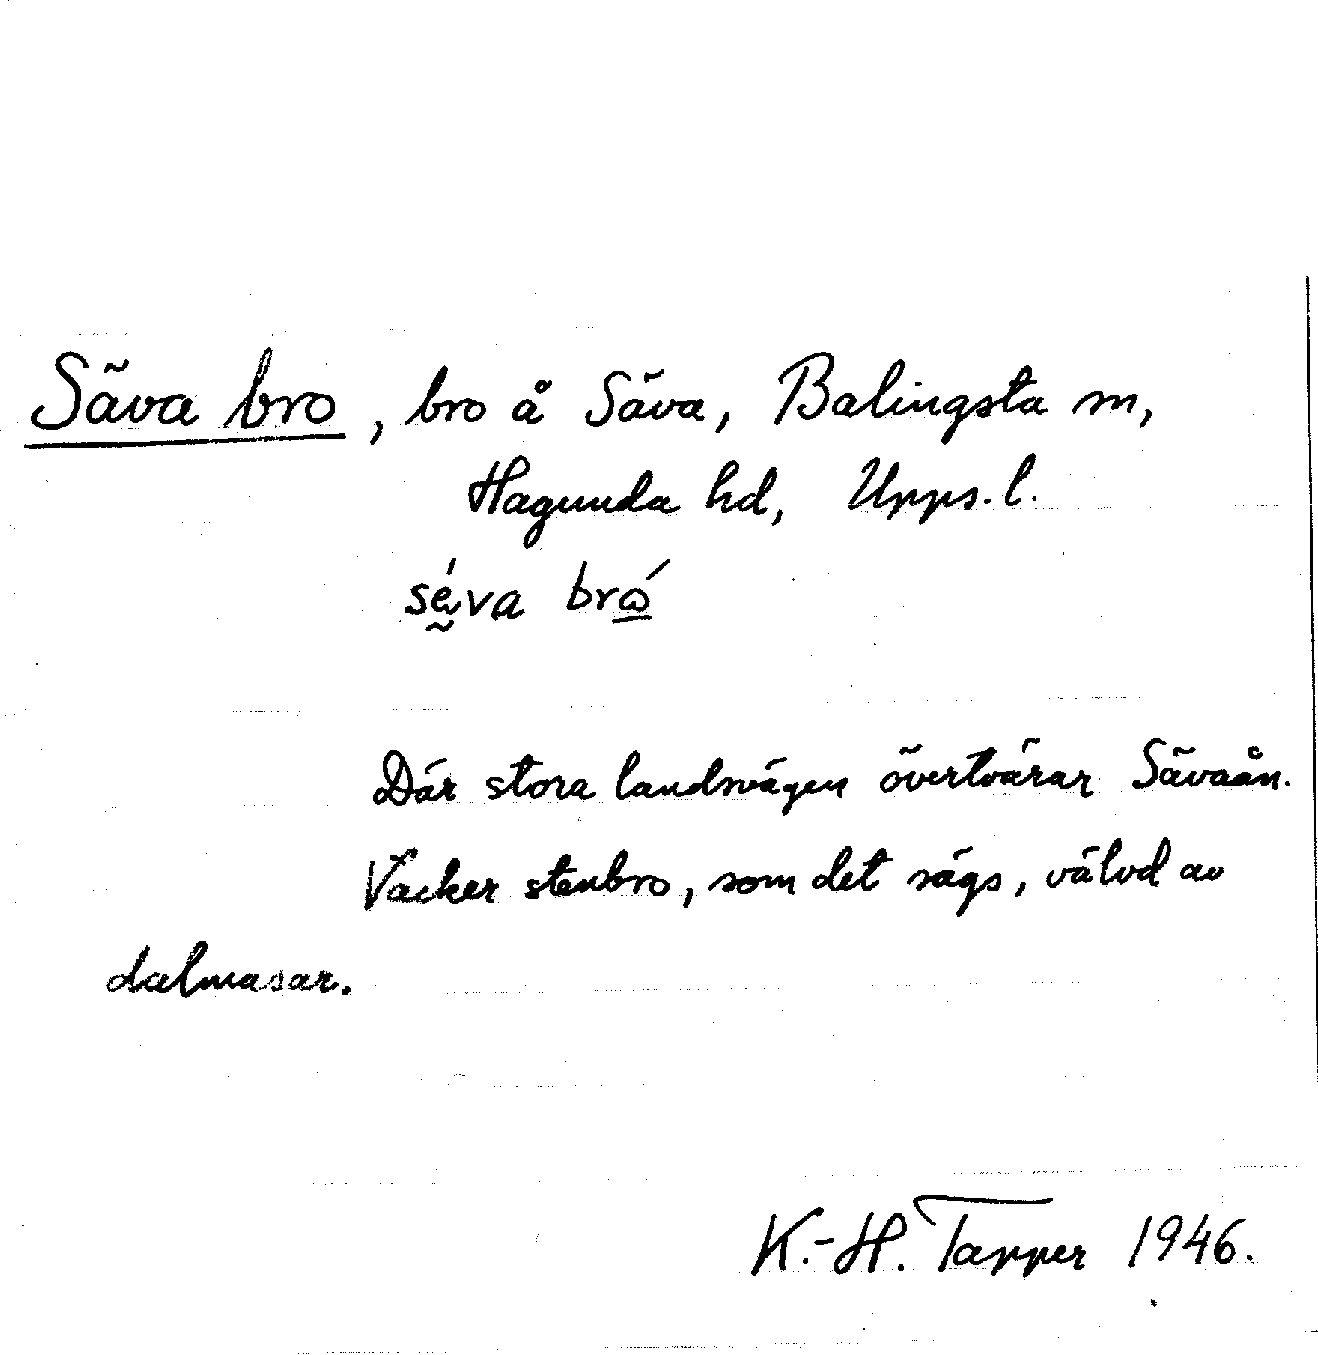 Säva bro, bro å Säva, Balingsta sn,
Hagunda hd, Upps. l.
séva bró
Där stora landsvägen övertvärar Sävaån.
Vacker stenbro, som det sägs, välvd av
dalmasar.
K.-H. Tapper 1946.